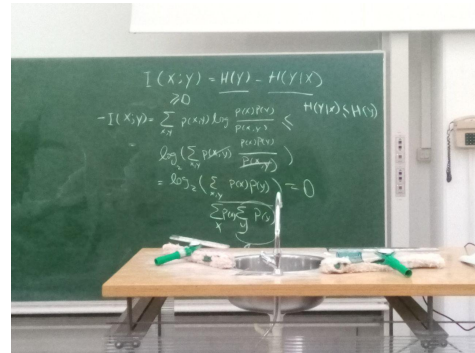 I(X;Y) = H(Y) - H(Y|X)
≥0
-I(X;Y) = ∑_{x,y} p(x,y) log p(x)p(y)/p(x,y) ≤
H(Y|X) ≤ H(Y)
= log₂(∑_{x,y} p(x,y) p(x)p(y)/p(x,y))
= log₂(∑_{x,y} p(x)p(y)) = 0
∑_x p(x) ∑_y p(y)